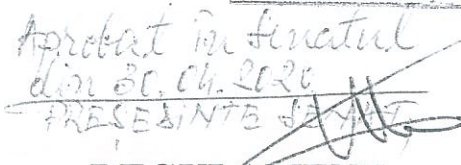 Aprobat în Senatul
din 30.04.2020
PREȘEDINTE SENAT,